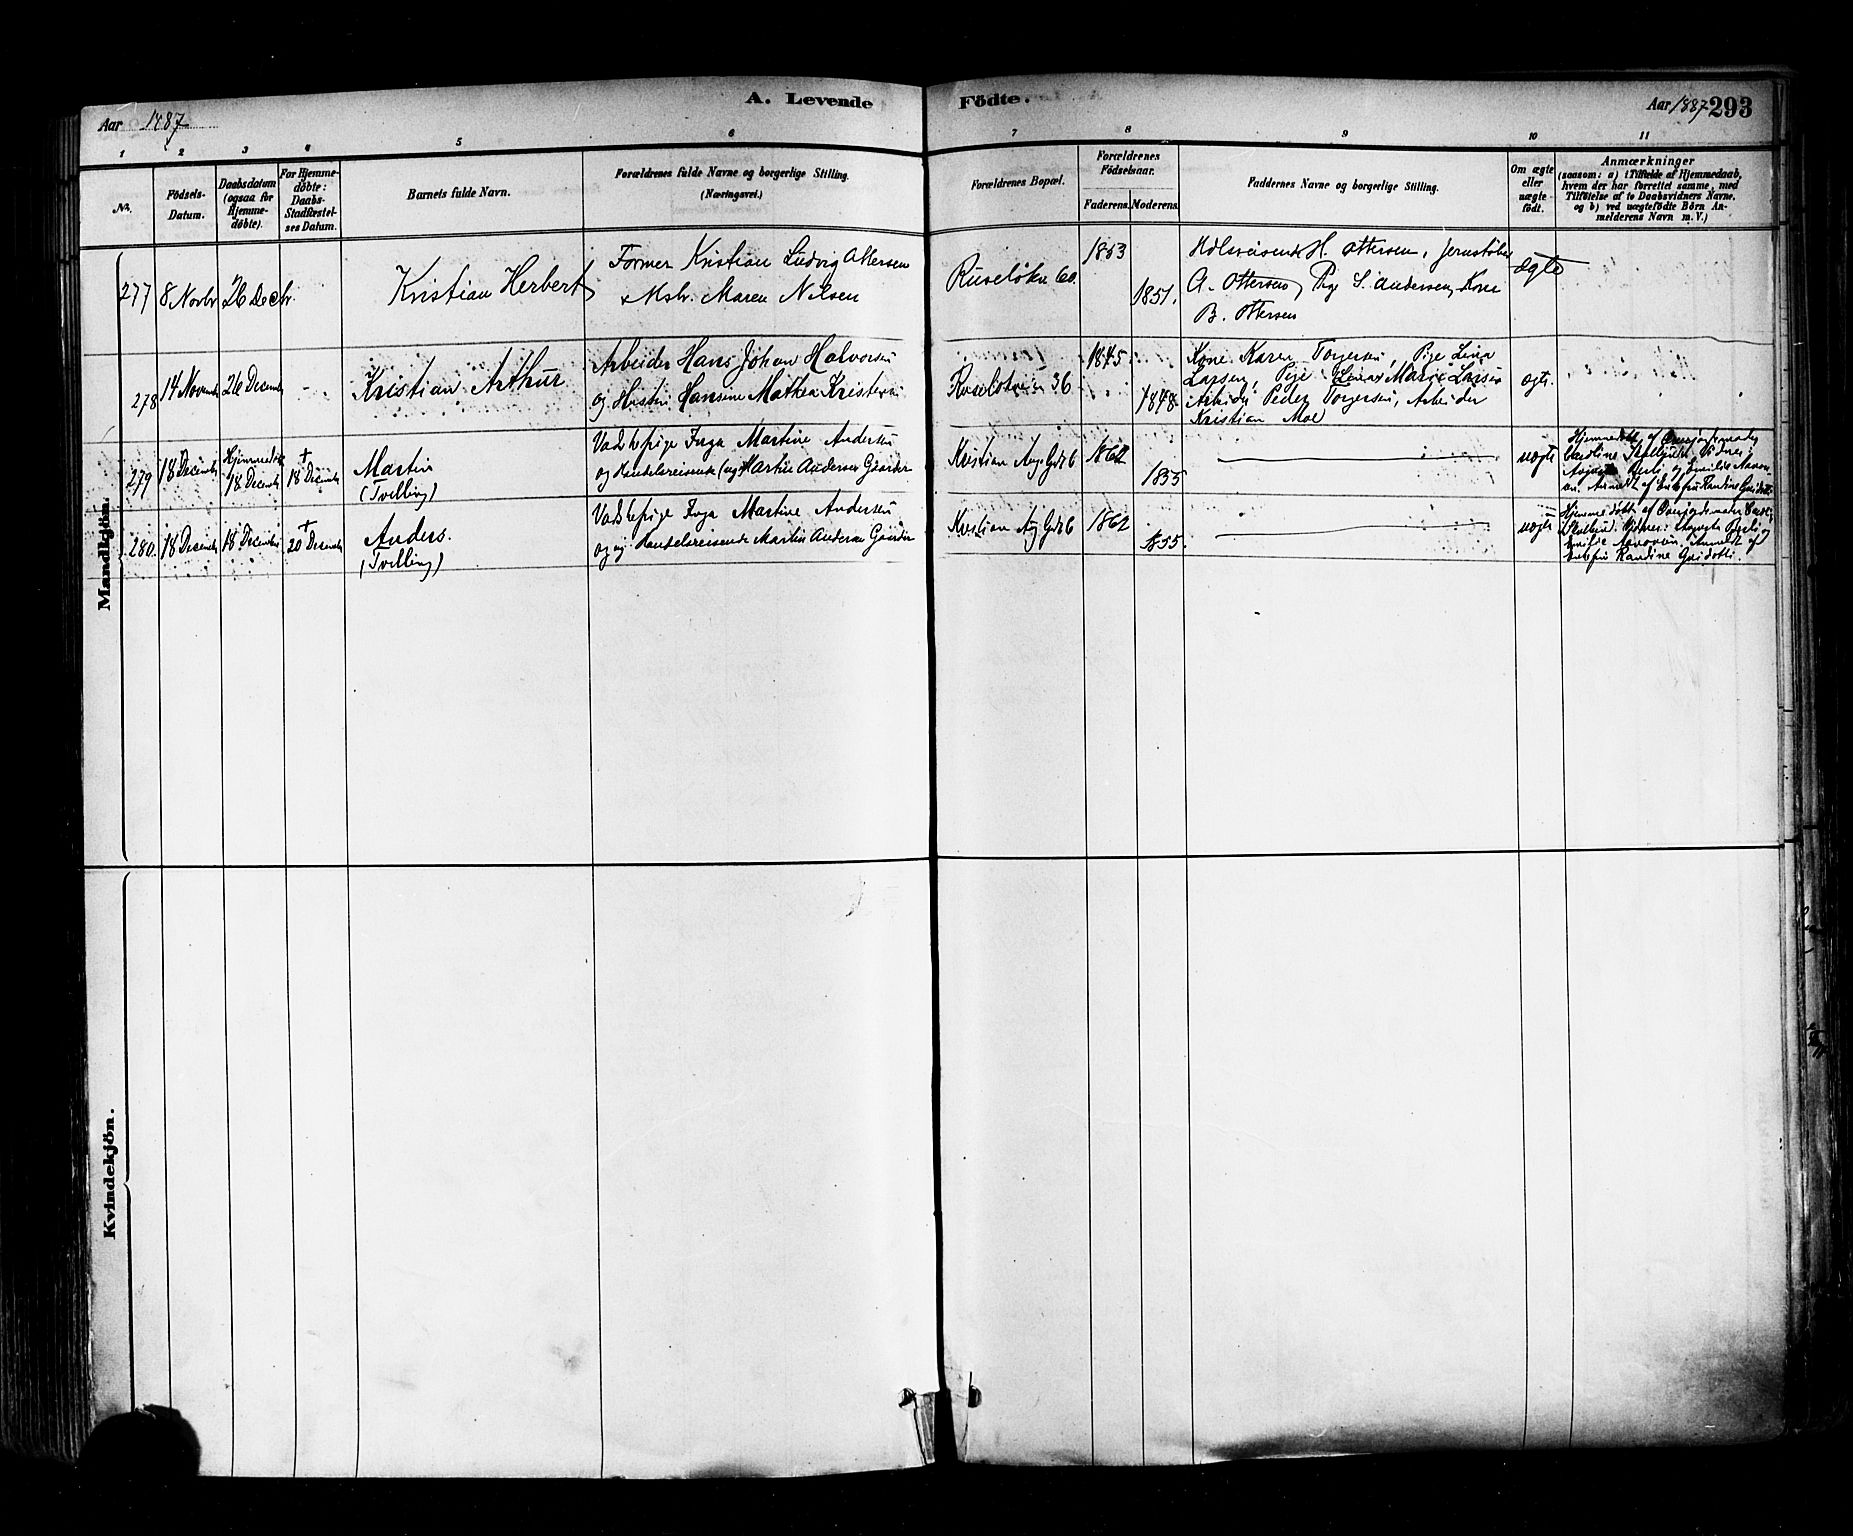 A. Levende Födte.
Aar 1887
Aar 1887 293
1 2 3 4 5 6 7 8 9 10 11
No.
Födsels-
Datum.
Daabsdatum
(ogsaa for
Hjemme-
döbte).
For Hjemme-
döbte:
Daabs-
Stadfæstel-
ses Datum.
Barnets fulde Navn.
Forældrenes fulde Navne og borgerlige Stilling.
(Næringsvei.)
Forældrenes Bopæl.
Forældrenes
Födselsaar.
Faderens. Moderens.
Faddernes Navne og borgerlige Stilling.
Om ægte
eller
uægte
født.
Anmærkninger
(saasom: a) i Tilfælde af Hjemmedaab,
hvem der har forrettet samme, med
Tilføielse af to Daabsvidners Navne,
og b) ved uægtefødte Börn An-
melderens Navn m. V.)
Mandkjön.
277 8 Novbr 26 Decbr.
Kristian Herbert
Former Kristian Ludvig Ottersen
& Hstr. Maren Nilsen
Ruseløkv 60.
1853
1851.
H. Ottersen,
A. Ottersen, Pige S. Andersen, Kone
B. Ottersen
ægte
278 14 Novemb 26 Decemb -
Kristian Arthur
Arbeider Hans Johan Halvorsen
og Hustru Hansine Mathea Kristensen
Ruseløkvein 36
1845
1848
Kone Karen Torgersen, Pige Lina
Larsen, Pige Marie Larsen
Arbeider Peder Torgersen, Arbeider
Kristian Moe
ægte
279 18 Decemb Hjemmedøbt
18 Decemb
†
18 Decemb
Martin
(Tvilling)
Vaskepige Inga Martine Andersen
og Handelsreisende (ug) Martin Andersen
Kristian Aug. Gd 6
1862
1855
uægte
Hjemmedøbt af
Caroline Vidner:
og Emilie
Anmeldt af Enkefru Randine Guidotti
280. 18 Decemb 18 Decemb
†
20 Decemb
Anders.
(Tvilling)
Vaskepige Inga Martine Andersen
og ug Handelsreisende Martin Andersen
Kristian Aug Gd 6
1862
1855.
uægte
Hjemmedøbt af
Vidner:
Emilie Anmeldt af
Enkefru Randine Guidotti.
Kvindekjön.